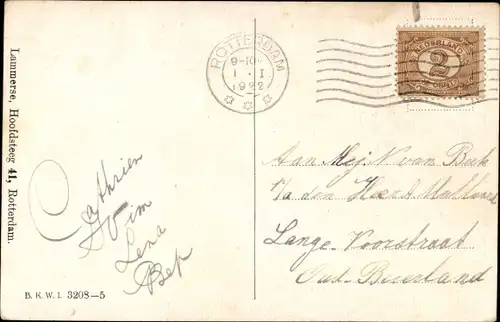 Lammerse, Hoofdsteeg 41, Rotterdam.
ROTTERDAM
9-10
1 . I
1922
NEDERLAND
2
CENT
Cathrien
Wim
Lena
Bep
Aan Mej N van Beek
p/a den Heer
Lange Voorstraat
Oud-Beierland
B. K. W. I. 3208-5